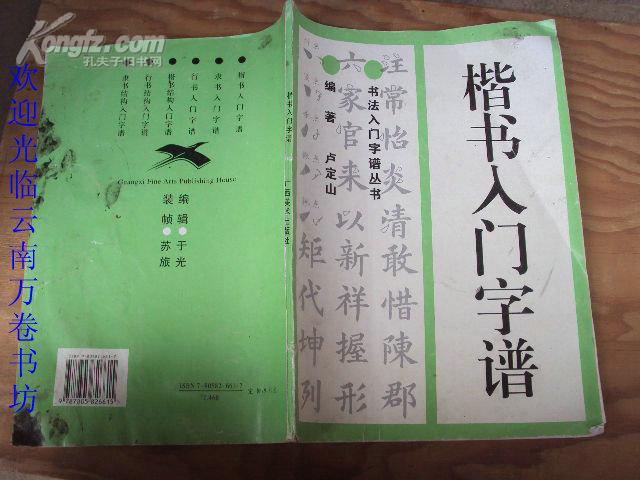 楷书入门字谱
书法入门字谱丛书
编著 卢定山
注常怡炎清敢惜陳郡
六家官来以新祥握形
矩代坤列
楷书入门字谱
广西美术出版社
楷书入门字谱
隶书入门字谱
行书入门字谱
楷书结构入门字谱
行书结构入门字谱
隶书结构入门字谱
Guangxi Fine Arts Publishing House
编辑 于光
装帧 苏旅
ISBN 7-80582-661-7
J.468
9787805826615
Kongfz.com
孔夫子旧书网
欢迎光临云南万卷书坊